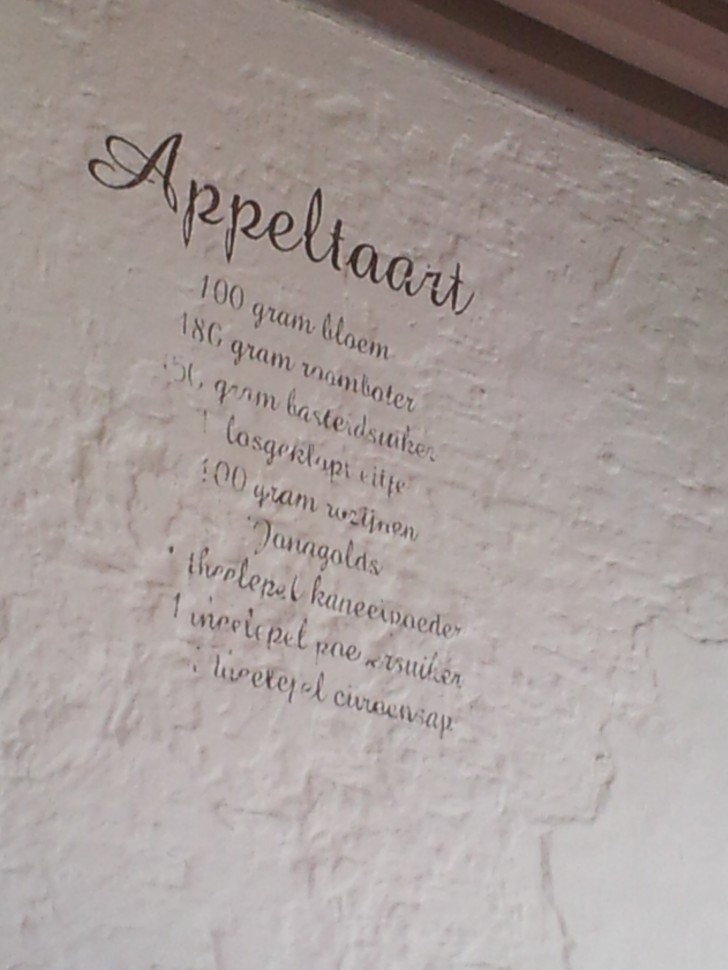 Appeltaart
100 gram bloem
180 gram roomboter
gram basterdsuiker
1 losgeklopt eitje
100 gram rozijnen
Jonagolds
theelepel kaneelpoeder
1 theelepel poedersuiker
theelepel citroensap